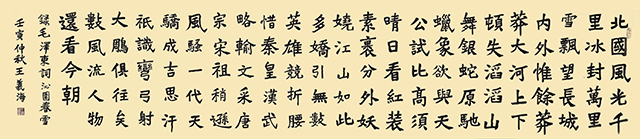 北國風光千
里冰封萬里
雪飄望長城
内外惟餘莽
莽大河上下
頓失滔滔山
舞銀蛇原馳
蠟象欲與天
公試比高須
晴日看紅裝
素裹分外妖
嬈江山如此
多嬌引無數
英雄競折腰
惜秦皇漢武
略輸文采唐
宗宋祖稍遜
風騷一代天
驕成吉思汗
祇識彎弓射
大雕俱往矣
數風流人物
還看今朝
錄毛澤東詞沁園春雪
壬寅仲秋王義海